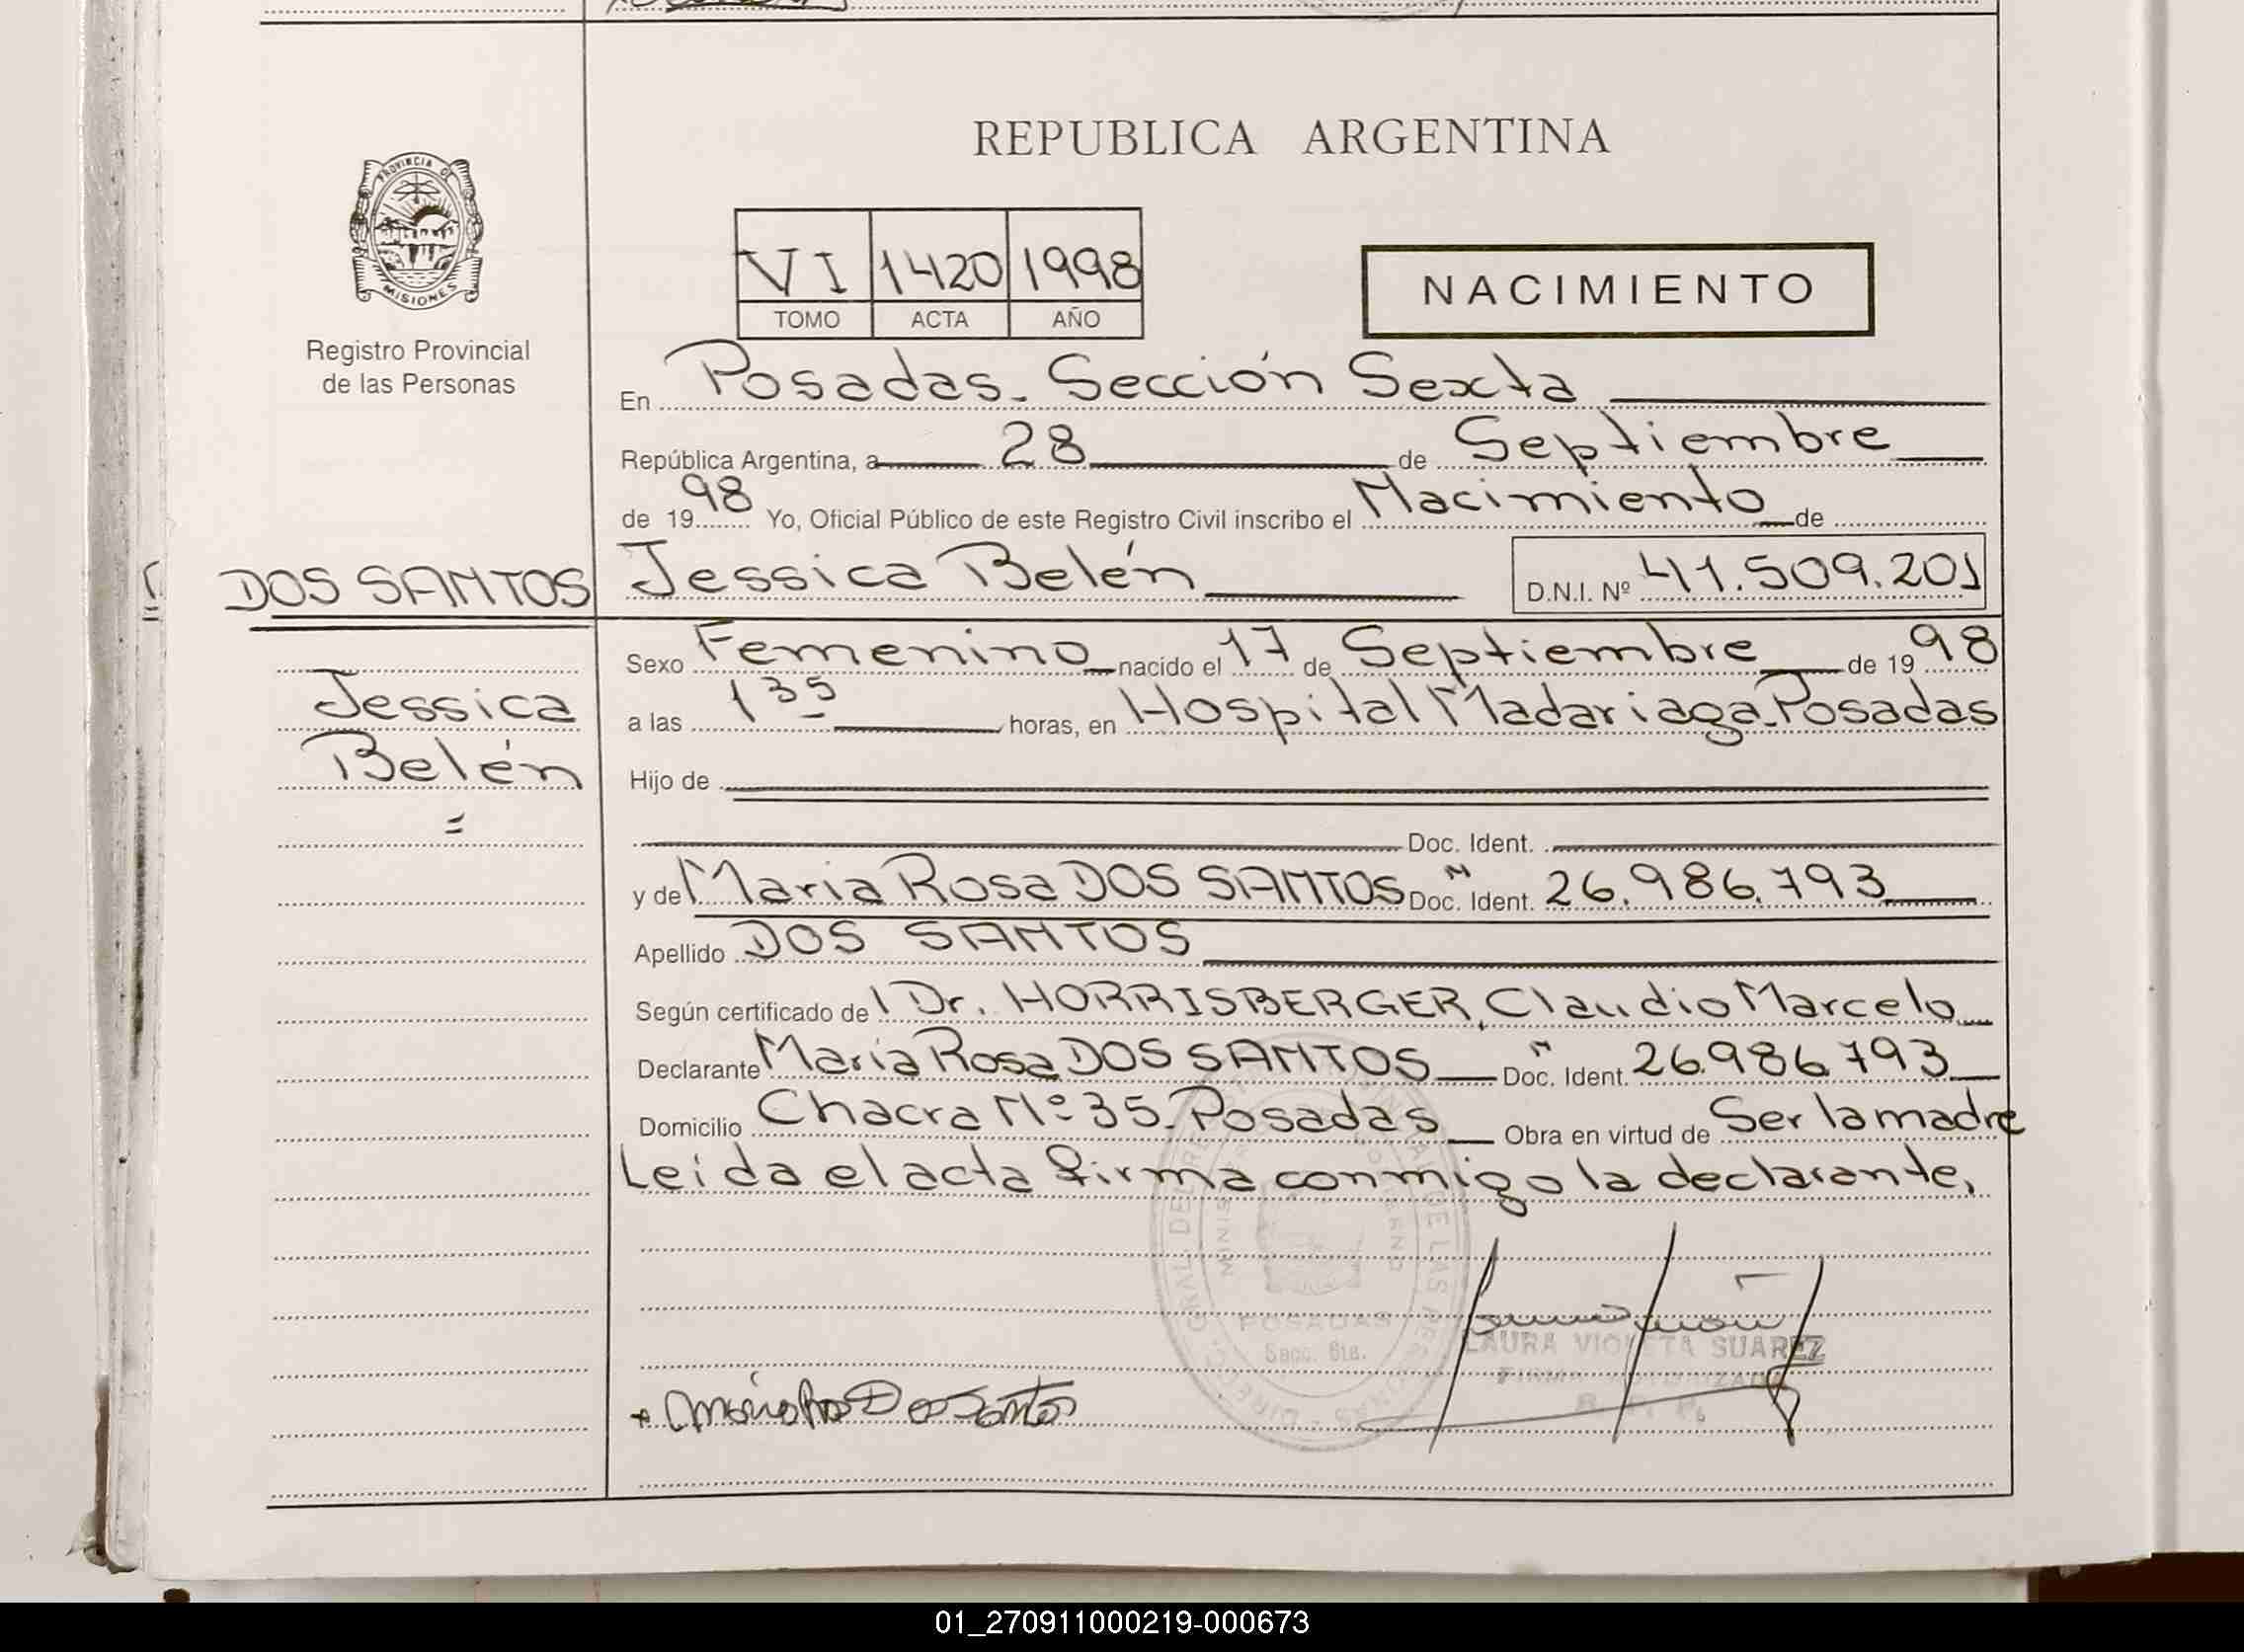 REPUBLICA ARGENTINA
PROVINCIA DE
MISIONES
Registro Provincial
de las Personas
VI 1420 1998
TOMO ACTA AÑO
NACIMIENTO
En Posadas. Sección Sexta
República Argentina, a 28 de Septiembre
de 1998 Yo, Oficial Público de este Registro Civil inscribo el Nacimiento de
DOS SANTOS
Jessica Belén D.N.I. Nº 41.509.201
Sexo Femenino nacido el 17 de Septiembre de 1998
Jessica
a las 1 35 horas, en Hospital Madariaga. Posadas
Belén
Hijo de
=
Doc. Ident.
y de Maria Rosa DOS SANTOS Doc. Ident. 26.986.793
Apellido DOS SANTOS
Según certificado de l Dr. HORRISBERGER, Claudio Marcelo
Declarante María Rosa DOS SANTOS Doc. Ident. 26.986.793
Domicilio Chacra Nº 35. Posadas Obra en virtud de Ser la madre
Leída el acta firma conmigo la declarante.
POSADAS
Secc. 6ta.
LAURA VIOLETA SUAREZ
01_270911000219-000673